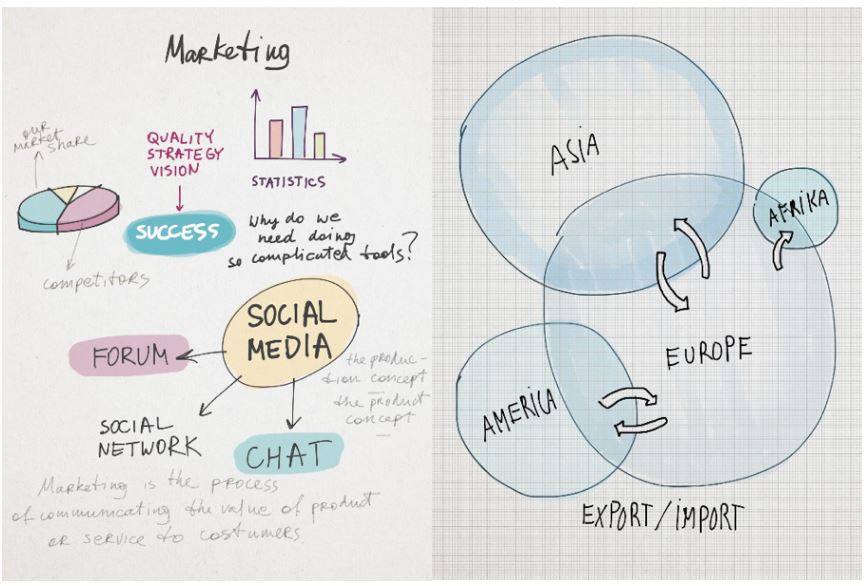 Marketing
our
market
share
QUALITY
STRATEGY
VISION
STATISTICS
SUCCESS
Why do we
need doing
so complicated tools?
competitors
SOCIAL
MEDIA
FORUM
the produc-
tion concept
the product
concept
SOCIAL
NETWORK
CHAT
Marketing is the process
of communicating the value of product
or service to costumers
ASIA
AFRIKA
EUROPE
AMERICA
EXPORT/IMPORT